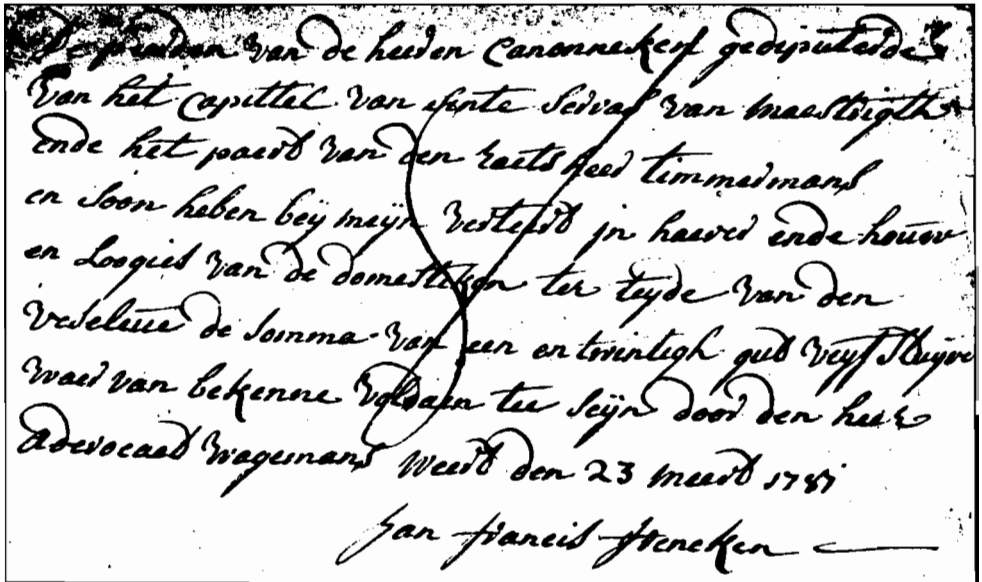 De peerden van de heeren Canonneken gedeputeerde
van het Capittel van sinte servaes van maestrigth
ende het paert van den raets heer timmermans
en soon heben beÿ meÿn verteert jn haever ende houw
en Loogies van de domestiken ter teyde van den
de somma van een en twintigh gul veyf stuyve
waer van bekenne voldaen tee seÿn door den heer
advocaet wagemans weert den 23 meert 1787
Jan francis